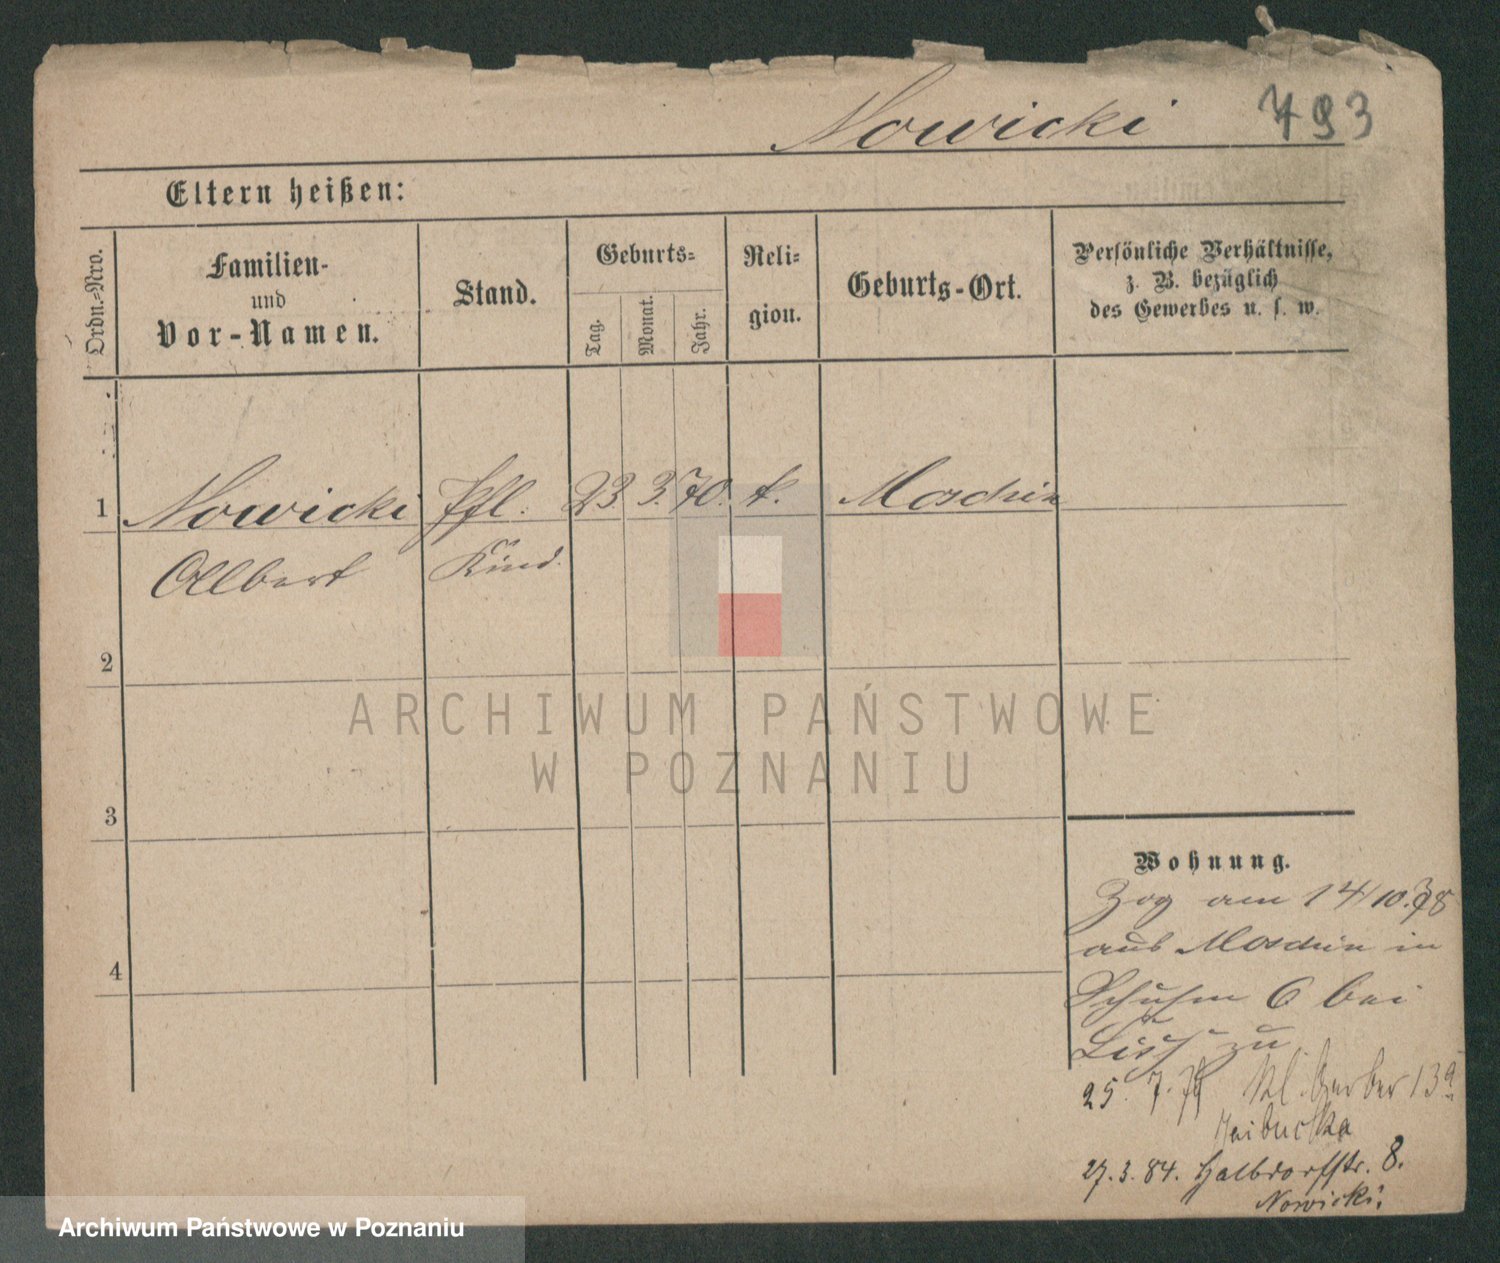 Nowicki 793
Eltern heißen:
Ordn.=Nro.
Familien-
und
Vor-Namen.
Stand.
Geburts=
Tag.
Monat.
Jahr.
Reli=
gion.
Geburts-Ort.
Persönliche Verhältnisse,
z. B. bezüglich
des Gewerbes u. s. w.
1 Nowicki Pfl. 23 3. 70. k. Moschin
Albert Kind.
2
3
4
Wohnung.
Zog am 14/10.78
aus Moschin in
6 bei
zu
25. 7. 79 Kl. Gerber 13a
27. 3. 84. Halbdorfstr. 8.
Nowicki.
ARCHIWUM PAŃSTWOWE
W POZNANIU
Archiwum Państwowe w Poznaniu